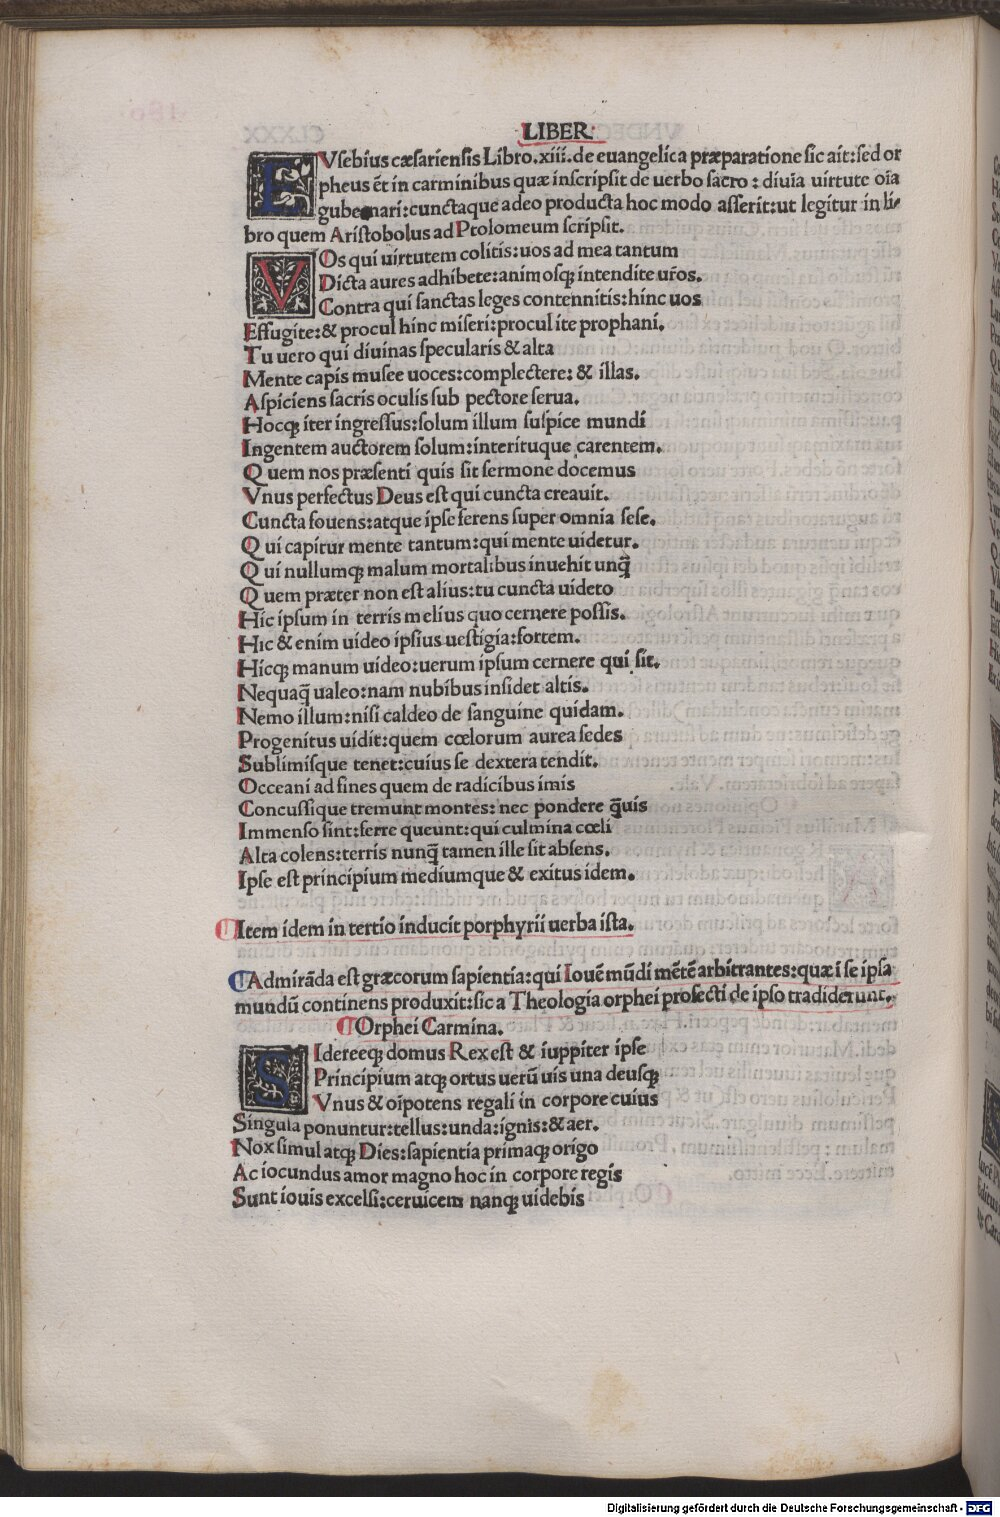 LIBER
EVsebius cæsariensis Libro.xiii.de euangelica præparatione sic ait:sed or
pheus ēt in carminibus quæ inscripsit de uerbo sacro : diuīa uirtute oīa
gubernari:cunctaque adeo producta hoc modo asserit:ut legitur in li-
bro quem Aristobolus ad Ptolomeum scripsit.
VOs qui uirtutem colitis:uos ad mea tantum
Dicta aures adhibete:animosq; intendite ur̄os.
Contra qui sanctas leges contennitis:hinc uos
Effugite:& procul hinc miseri:procul ite prophani.
Tu uero qui diuinas specularis & alta
Mente capis musee uoces:complectere: & illas.
Aspiciens sacris oculis sub pectore serua.
Hocq; iter ingressus:solum illum suspice mundi
Ingentem auctorem solum:interituque carentem.
Quem nos præsenti quis sit sermone docemus
Vnus perfectus Deus est qui cuncta creauit.
Cuncta fouens:atque ipse ferens super omnia sese.
Qui capitur mente tantum:qui mente uidetur.
Qui nullumq; malum mortalibus inuehit unq̄
Quem præter non est alius:tu cuncta uideto
Hic ipsum in terris melius quo cernere possis.
Hic & enim uideo ipsius uestigia:fortem.
Hicq; manum uideo:uerum ipsum cernere qui sit.
Nequaq̄ ualeo:nam nubibus insidet altis.
Nemo illum:nisi caldeo de sanguine quidam.
Progenitus uidit:quem cœlorum aurea sedes
Sublimisque tenet:cuius se dextera tendit.
Occeani ad fines quem de radicibus imis
Concussique tremunt montes: nec pondere q̄uis
Immenso sint:ferre queunt:qui culmina cœli
Alta colens:terris nunq̄ tamen ille sit absens.
Ipse est principium mediumque & exitus idem.
¶Item idem in tertio inducit porphyrii uerba ista.
¶Admirāda est græcorum sapientia:qui Iouē mūdi mētē arbitrantes:quæ ī se ipsa
mundū continens produxit:sic a Theologia orphei profecti de ipso tradiderunt.
¶Orphei Carmina.
SIdereeq; domus Rex est & iuppiter ipse
Principium atq; ortus uerū uis una deusq;
Vnus & oīpotens regali in corpore cuius
Singula ponuntur:tellus:unda:ignis:& aer.
Nox simul atq; Dies:sapientia primaq; origo
Ac iocundus amor magno hoc in corpore regis
Sunt iouis excelsi:ceruicem nanq; uidebis
Digitalisierung gefördert durch die Deutsche Forschungsgemeinschaft - DFG